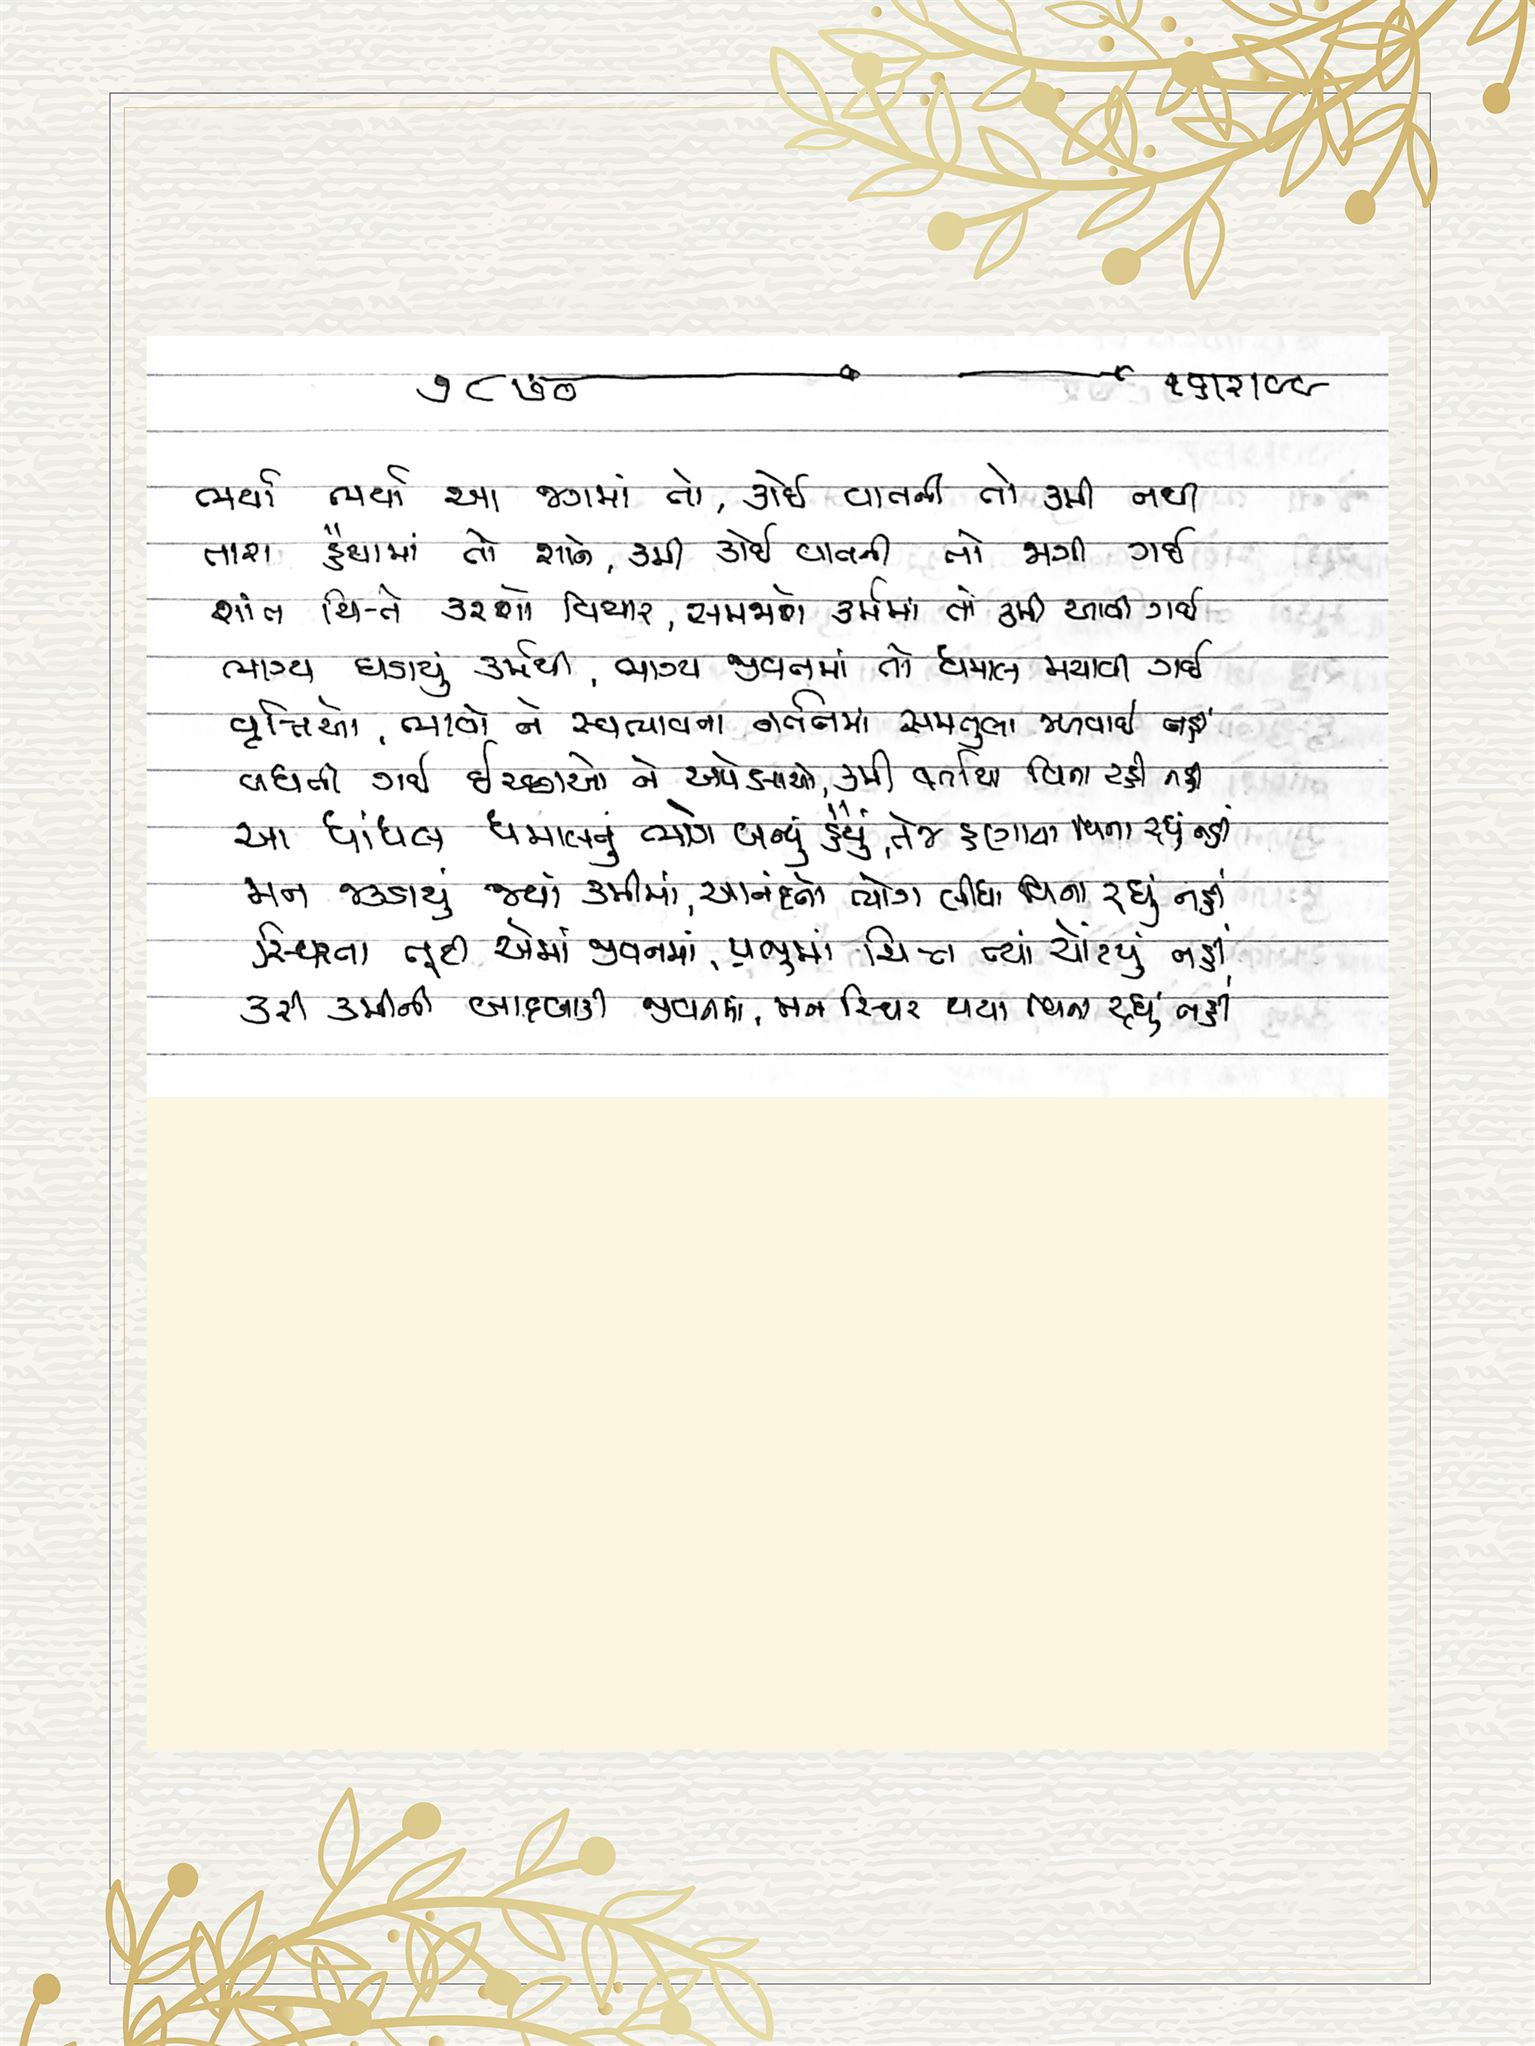 ૭૮૭૦ ૧૬।૨।૯૯
ભર્યા ભર્યા આ જગમાં તો, કોઈ વાતની તો કમી નથી
તારા હૈયામાં તો શાને, કમી કોઈ વાતની તો જાગી ગઈ
શાંત ચિત્તે કરજો વિચાર, સમજાશે કર્મમાં તો કમી આવી ગઈ
ભાગ્ય ઘડાયું કર્મથી, ભાગ્ય જીવનમાં તો ધમાલ મચાવી ગઈ
વૃત્તિઓ, ભાવો ને સ્વભાવના નર્તનમાં સમતુલા જળવાઈ નહીં
વધતી ગઈ ઈચ્છાઓ ને અપેક્ષાઓ, કમી વર્તાયા વિના રહી નહી
આ ધાંધલ ધમાલનું ભોગ બન્યું હૈયું, તેજ હણાયા વિના રહ્યું નહીં
મન જકડાયું જ્યાં કમીમાં, આનંદનો ભોગ લીધા વિના રહ્યું નહીં
સ્થિરતા તૂટી એમાં જીવનમાં, પ્રભુમાં ચિત્ત ત્યાં ચોંટયું નહીં
કરી કમીની બાદબાકી જીવનમાં, મન સ્થિર થયા વિના રહ્યું નહીં